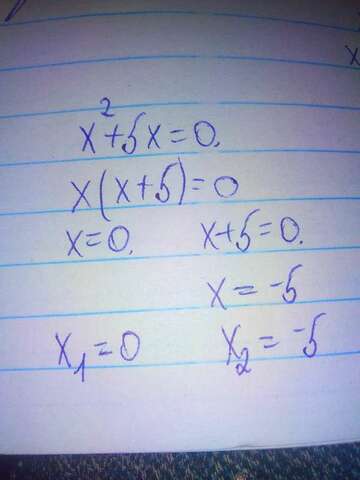 x² + 5x = 0.
x(x+5) = 0
x = 0. x+5 = 0.
x = -5
x₁ = 0 x₂ = -5
x